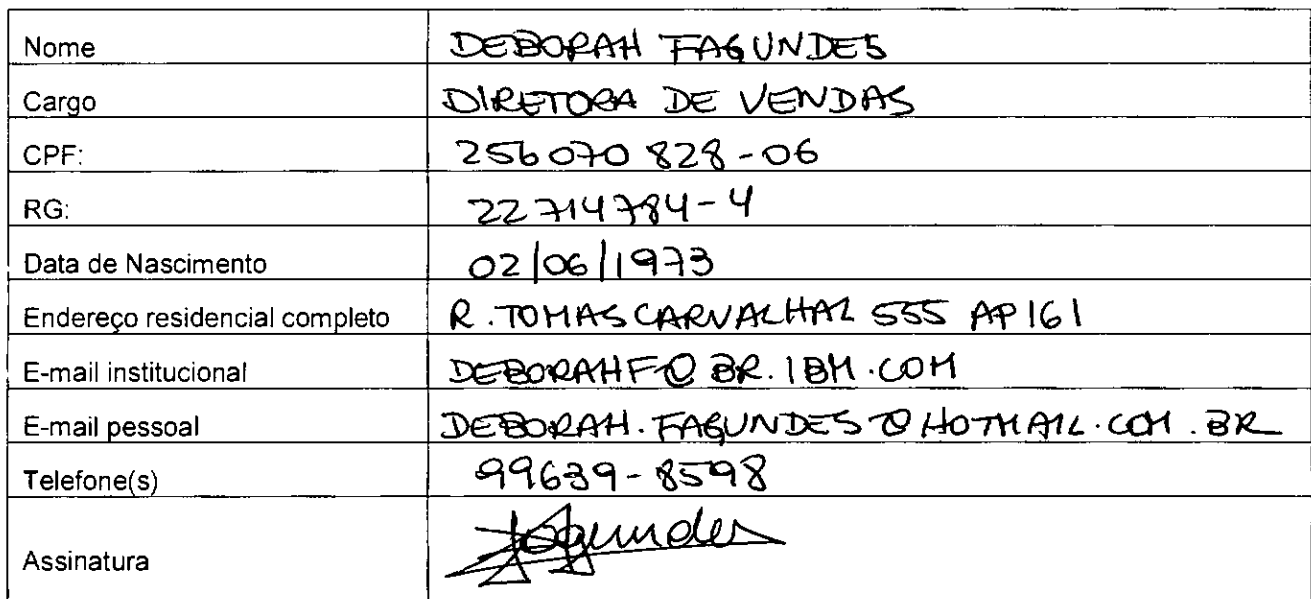 Nome DEBORAH FAGUNDES
Cargo DIRETORA DE VENDAS
CPF: 256070828-06
RG: 22714784-4
Data de Nascimento 02/06/1973
Endereço residencial completo R. TOMAS CARVALHAL 555 AP 161
E-mail institucional DEBORAHF@BR.IBM.COM
E-mail pessoal DEBORAH.FAGUNDES@HOTMAIL.COM.BR
Telefone(s) 99639-8598
Assinatura Fagundes